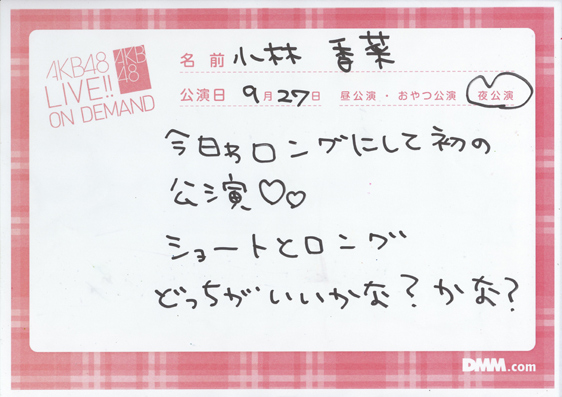 AKB48
LIVE!!
ON DEMAND
AKB
48
名前 小林 香菜
公演日 9月27日 昼公演・おやつ公演 夜公演
今日ゎロングにして初の
公演♡♡
ショートとロング
どっちがいいかな?かな?
DMM.com